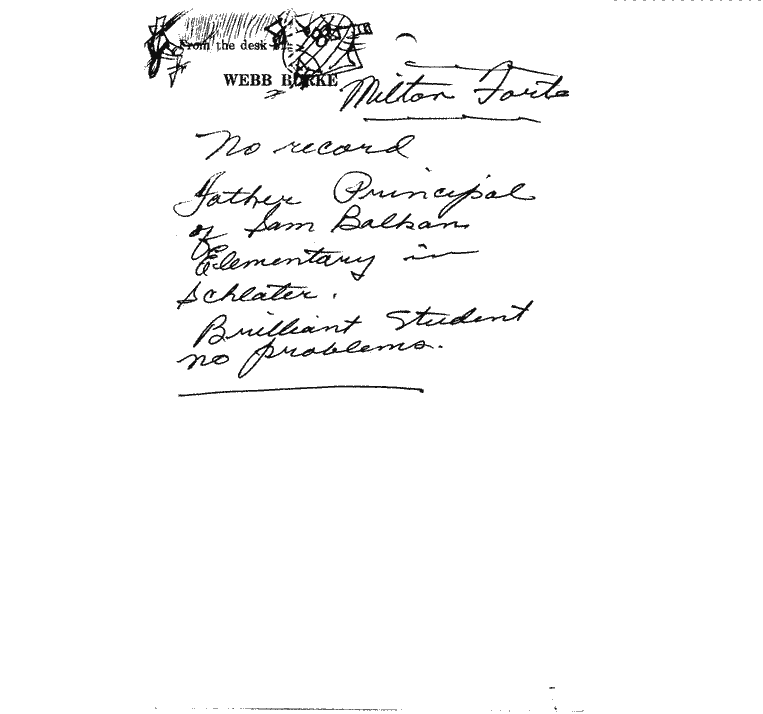 From the desk of
WEBB BURKE
Milton Forte
No record
Father Principal
of Sam Balkans
Elementary in
Schlater.
Brilliant Student
no problems.